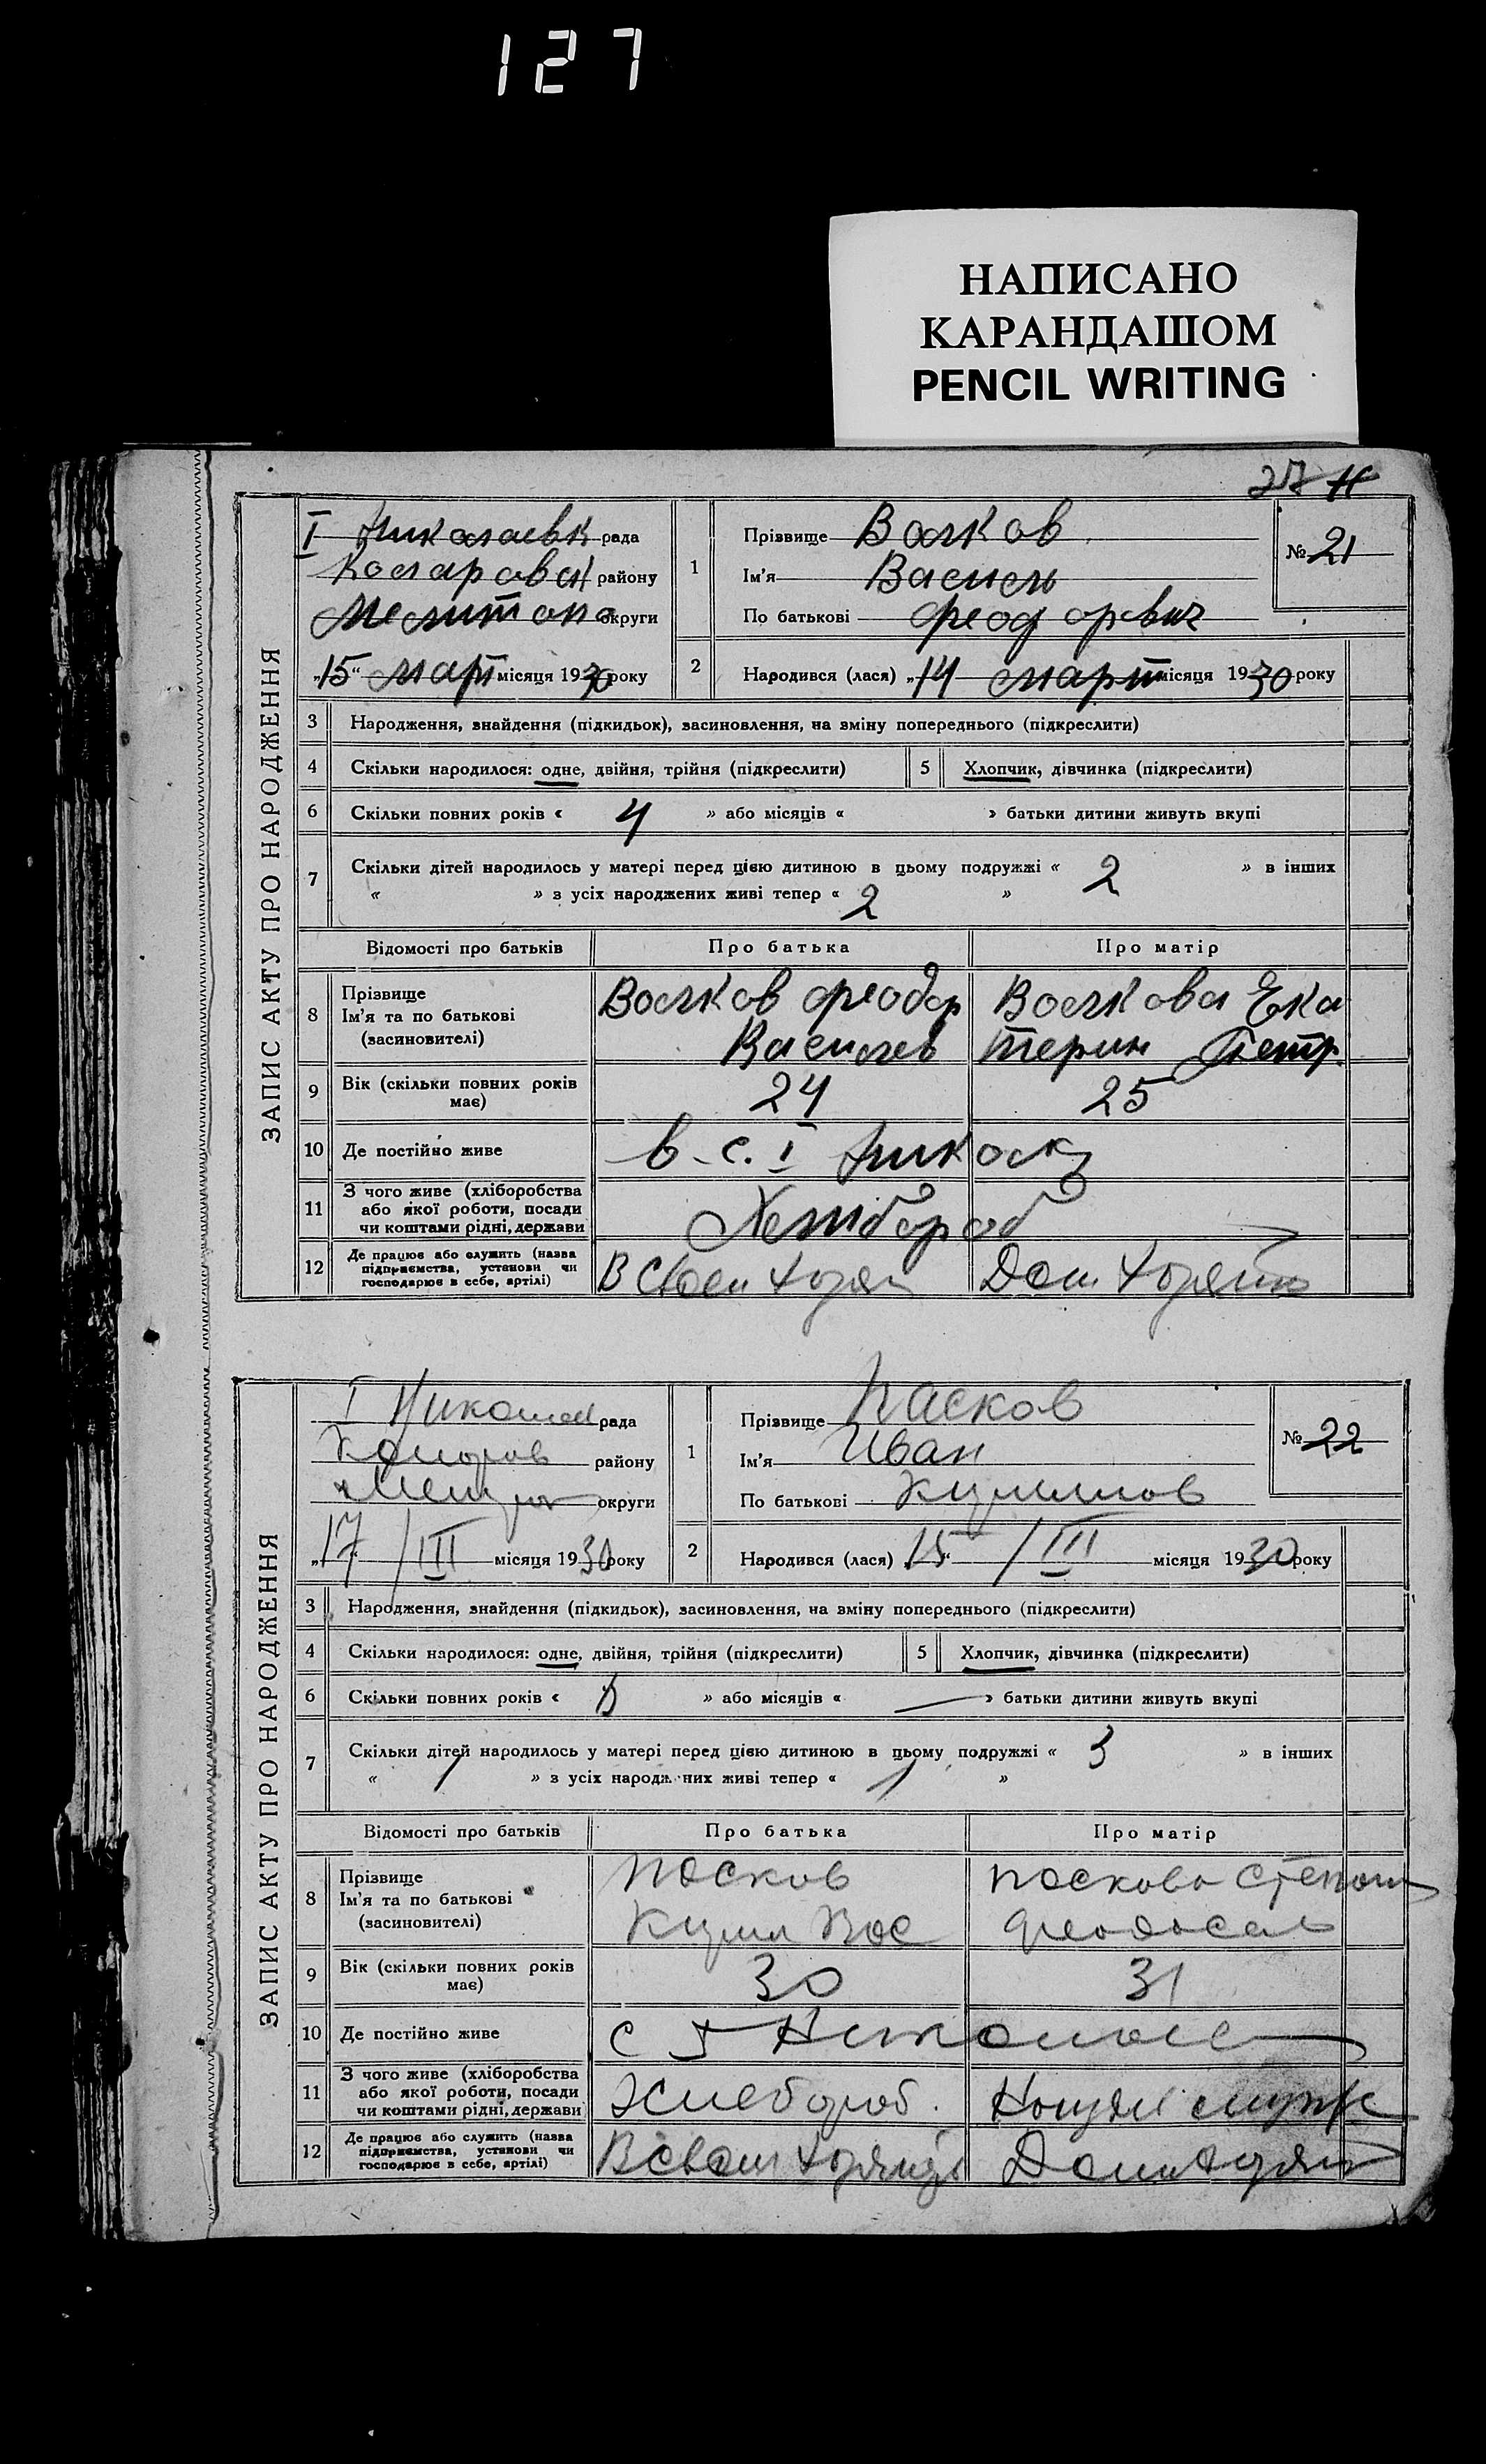 127
НАПИСАНО
КАРАНДАШОМ
PENCIL WRITING
ЗАПИС АКТУ ПРО НАРОДЖЕННЯ
I Николаевк рада
Коларовск району
Мелитоп округи
„15“ март місяця 1930 року
1
Прізвище Волков
Ім'я Василь
По батькові Феодорович
№ 21
2
Народився (лася) „14 март місяця 1930 року
3 Народження, знайдення (підкидьок), засиновлення, на зміну попереднього (підкреслити)
4 Скільки народилося: одне, двійня, трійня (підкреслити) 5 Хлопчик, дівчинка (підкреслити)
6 Скільки повних років « 4 » або місяців « » батьки дитини живуть вкупі
7 Скільки дітей народилось у матері перед цією дитиною в цьому подружжі « 2 » в інших
« » з усіх народжених живі тепер « 2 »
Відомості про батьків Про батька Про матір
8 Прізвище
Ім'я та по батькові
(засиновителі)
Волков Феодор
Василев
Волкова Ека
терин Петр.
9 Вік (скільки повних років
має)
24 25
10 Де постійно живе в с. I Никол
11 З чого живе (хліборобства
або якої роботи, посади
чи коштами рідні, держави
Хлибороб
12 Де працює або служить (назва
підприємства, установи чи
господарює в себе, артілі)
В своем хозяй Дом хозяйко
ЗАПИС АКТУ ПРО НАРОДЖЕННЯ
I Николаев рада
Коларов району
округи
„17 /III місяця 1930 року
1
Прізвище Пасков
Ім'я Иван
По батькові Кирилов
№ 22
2
Народився (лася) „15“ /III місяця 1930 року
3 Народження, знайдення (підкидьок), засиновлення, на зміну попереднього (підкреслити)
4 Скільки народилося: одне, двійня, трійня (підкреслити) 5 Хлопчик, дівчинка (підкреслити)
6 Скільки повних років « » або місяців « — » батьки дитини живуть вкупі
7 Скільки дітей народилось у матері перед цією дитиною в цьому подружжі « 3 » в інших
« / » з усіх народжених живі тепер « / »
Відомості про батьків Про батька Про матір
8 Прізвище
Ім'я та по батькові
(засиновителі)
Пасков
Кирил Вас
Паскова Степан
9 Вік (скільки повних років
має)
30 31
10 Де постійно живе с I Николаев
11 З чого живе (хліборобства
або якої роботи, посади
чи коштами рідні, держави
Хлебороб.
12 Де працює або служить (назва
підприємства, установи чи
господарює в себе, артілі)
В своем хозяйстве Дом хозяй